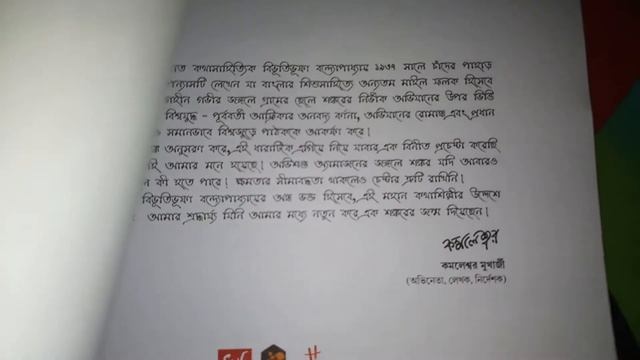 কথাসাহিত্যিক বিভূতিভূষণ বন্দ্যোপাধ্যায় ১৯৩৭ সালে চাঁদের পাহাড়
লেখেন যা বাংলার শিশুসাহিত্যে অন্যতম মাইল ফলক হিসেবে
গভীর জঙ্গলে গ্রামের ছেলে শঙ্করের নির্ভীক অভিযানের উপর ভিত্তি
বিশ্বযুদ্ধ - পূর্ববর্তী আফ্রিকার অনবদ্য বর্ণনা, অভিযানের রোমাঞ্চ এবং প্রধান
সমানভাবে বিশ্বজুড়ে পাঠককে আকর্ষণ করে।
অনুসরণ করে, এই ধারাটিকে এগিয়ে নিয়ে যাবার এক বিনীত প্রচেষ্টা করেছি
আমার মনে হয়েছে। অভিশপ্ত অ্যামাজনের জঙ্গলে শঙ্কর যদি আবারও
কী হতে পারে। ক্ষমতার সীমাবদ্ধতা থাকলেও চেষ্টার ত্রুটি রাখিনি।
বিভূতিভূষণ বন্দ্যোপাধ্যায়ের অন্ধ ভক্ত হিসেবে, এই মহান কথাশিল্পীর উদ্দেশে
আমার শ্রদ্ধার্ঘ্য যিনি আমার মধ্যে নতুন করে এক শঙ্করের জন্ম দিয়েছেন।
কমলেশ্বর
কমলেশ্বর মুখার্জী
(অভিনেতা, লেখক, নির্দেশক)